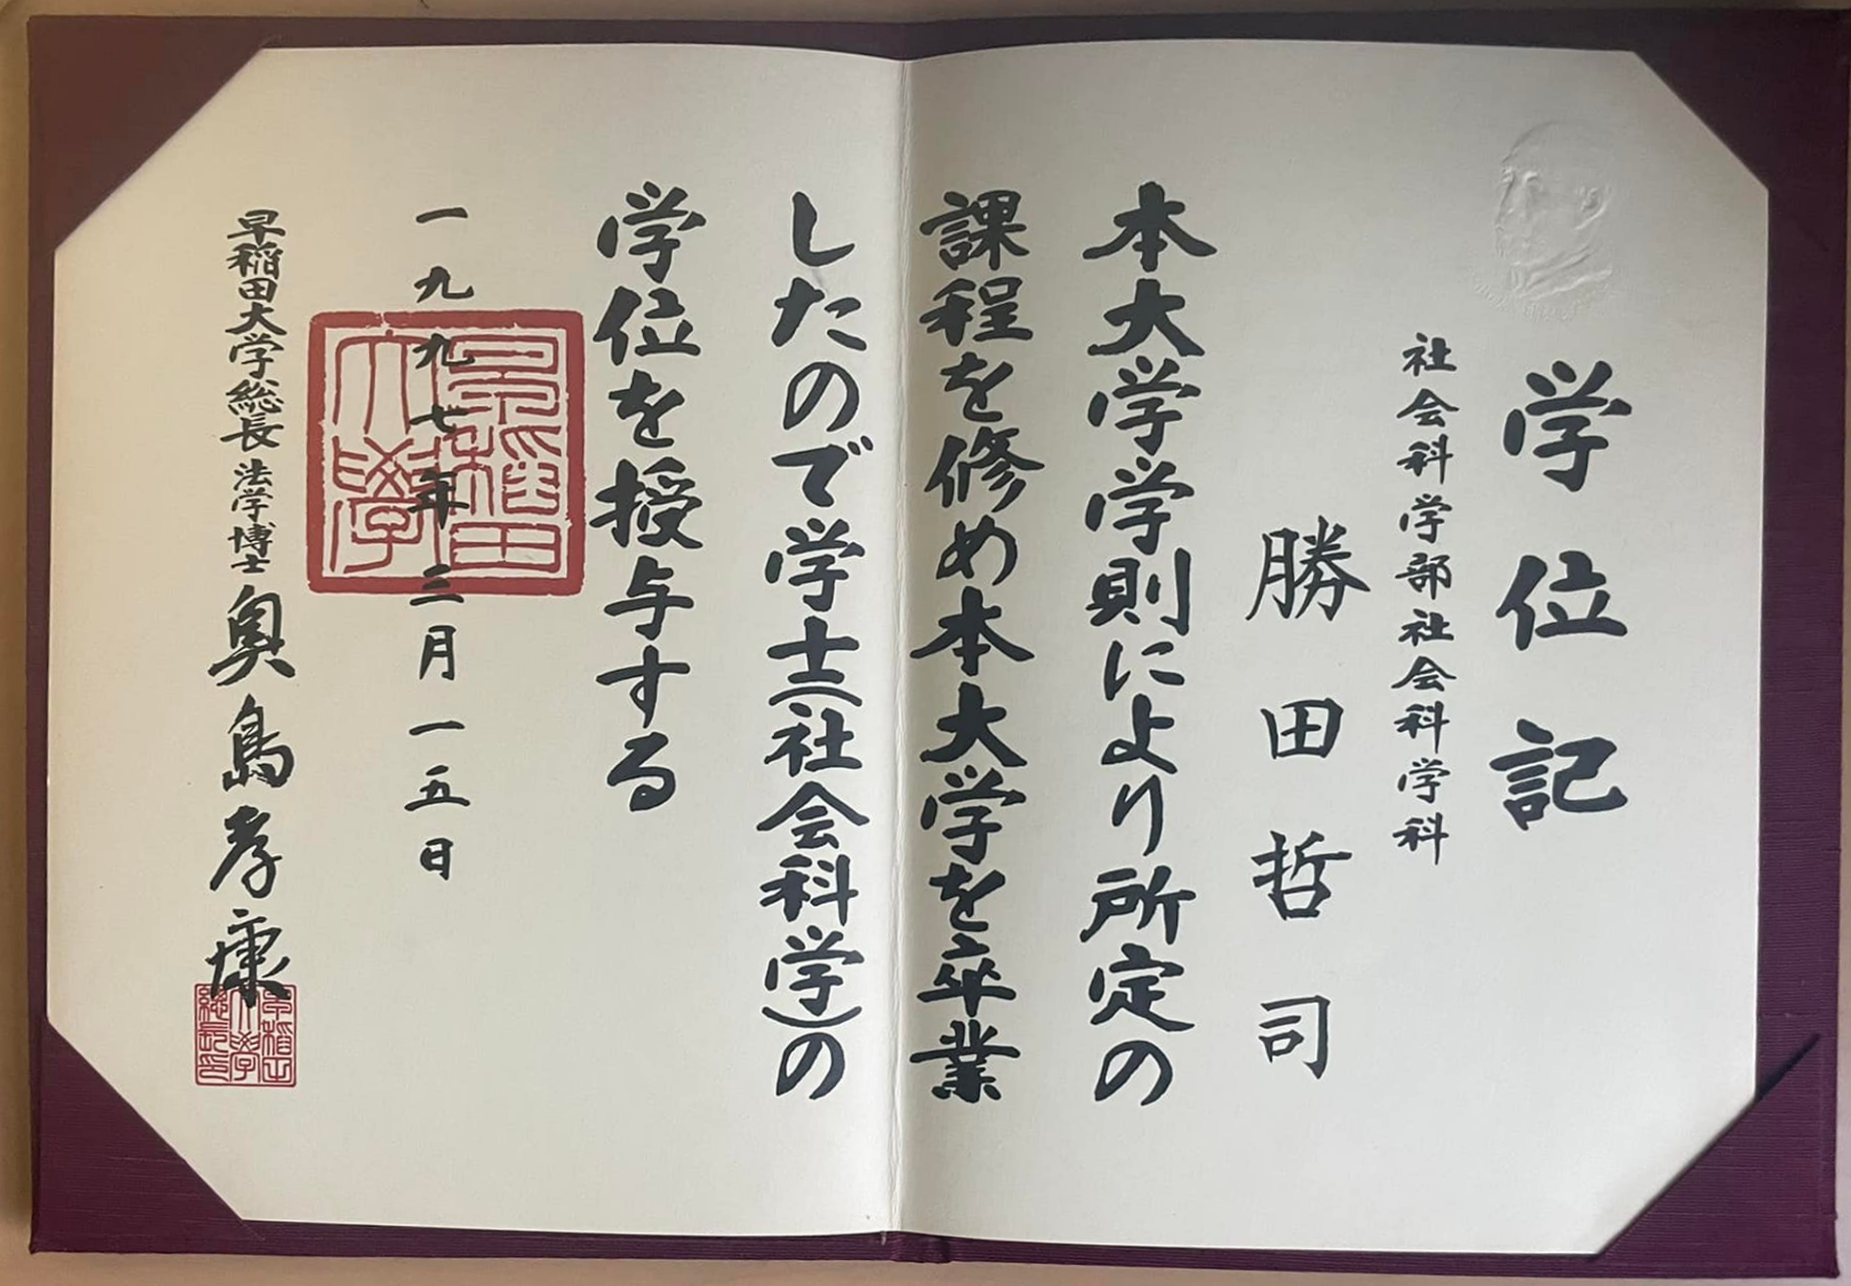 学位記
社会科学部社会科学科
勝田哲司
本大学学則により所定の
課程を修め本大学を卒業
したので学士(社会科学)の
学位を授与する
一九九七年三月一五日
早稲田大学
早稲田大学総長 法学博士 奥島孝康
早稲田大学総長印